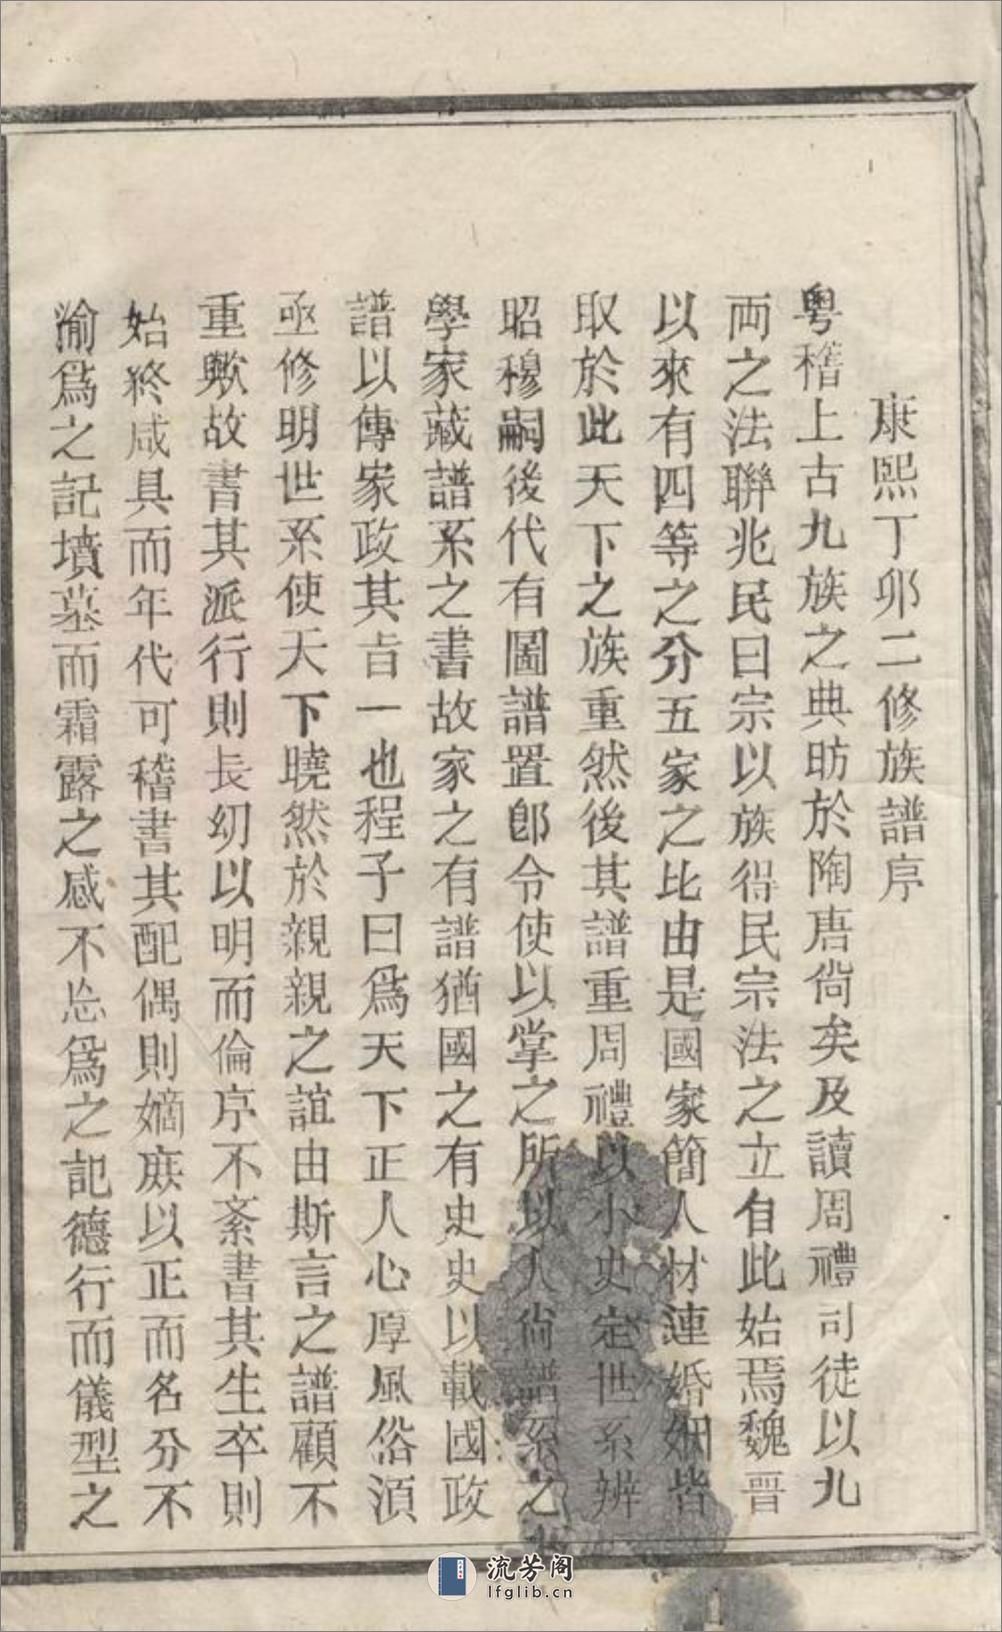 康熙丁卯二修族譜序
粤稽上古九族之典昉於陶唐尙矣及讀周禮司徒以九
両之法聯兆民曰宗以族得民宗法之立自此始焉魏晋
以來有四等之分五家之比由是國家簡人材連婚姻皆
取於此天下之族重然後其譜重周禮以小史定世系辨
昭穆嗣後代有圖譜置郎令使以掌之所以人尙譜系之
學家藏譜系之書故家之有譜猶國之有史史以載國政
譜以傳家政其㫖一也程子曰爲天下正人心厚風俗須
亟修明世系使天下曉然於親親之誼由斯言之譜顧不
重歟故書其派行則長幼以明而倫序不紊書其生卒則
始終咸具而年代可稽書其配偶則嫡庶以正而名分不
渝爲之記墳墓而霜露之感不忘爲之記德行而儀型之
流芳阁
lfglib.cn